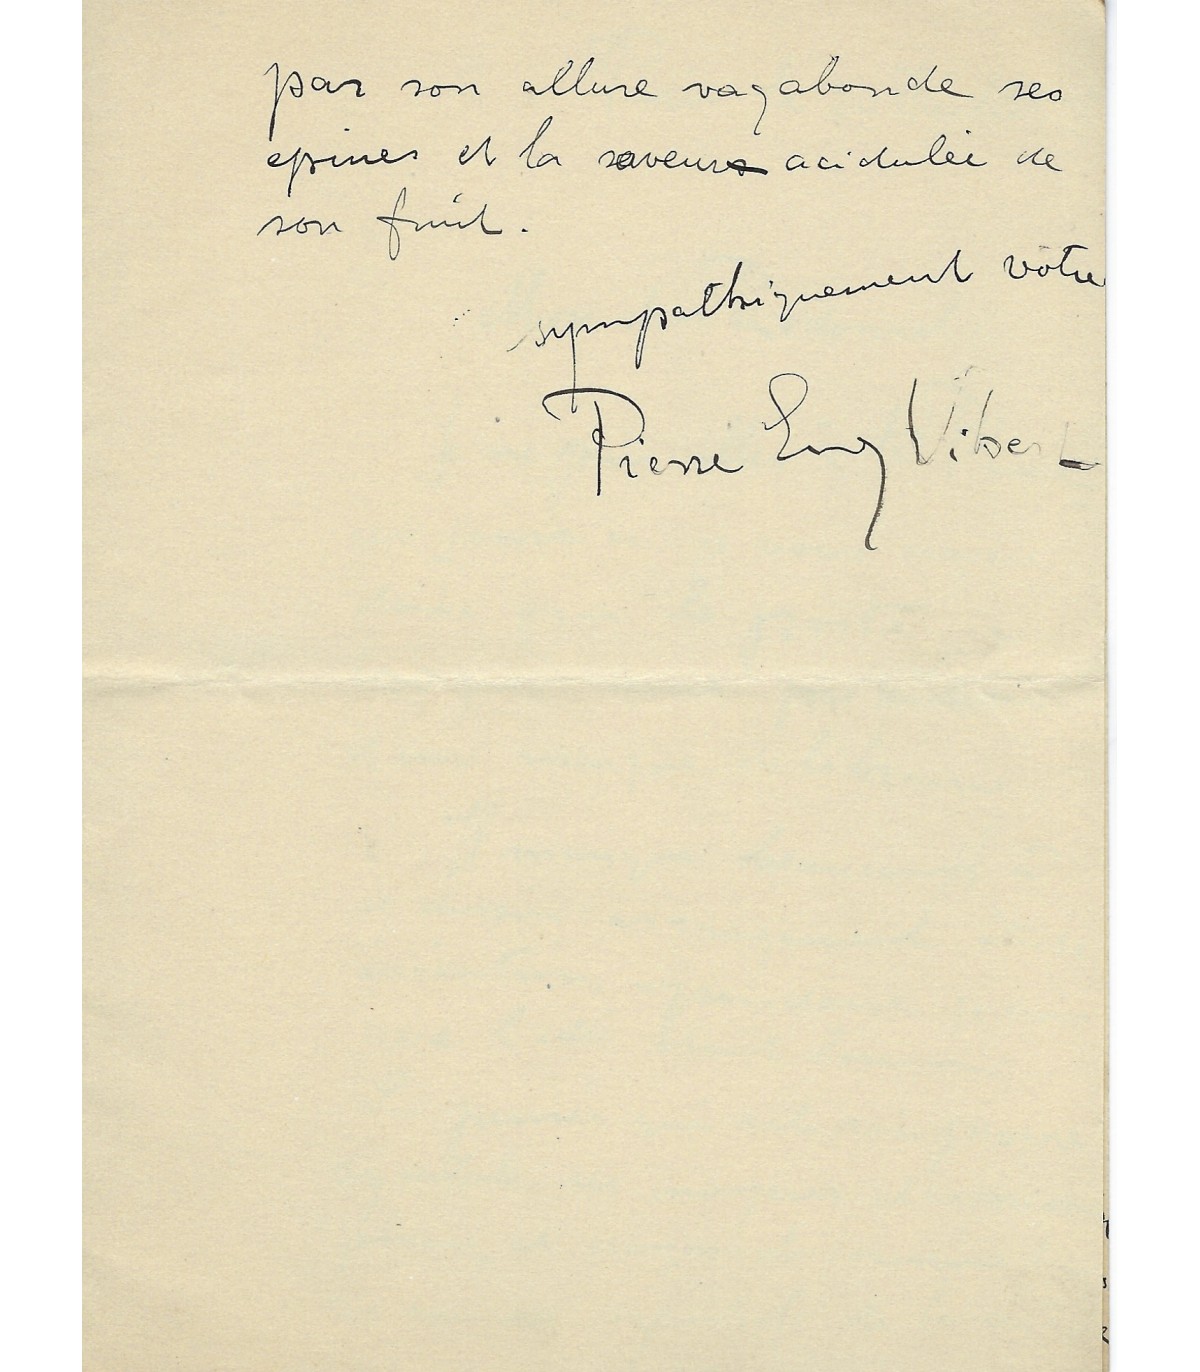 par son allure vagabonde ses
epines et la saveur acidulée de
son fruit.
sympathiquement vôtre
Pierre Eug Vibert